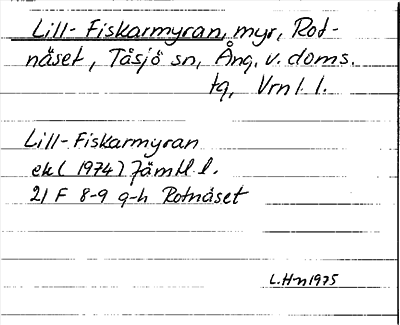 Lill-Fiskarmyran, myr, Rot-
näset, Tåsjö sn, Ång. v. doms.
tq, Vrnl. l.
Lill-Fiskarmyran
ek (1974) Jämtl. l.
21 F 8-9 g-h Rotnäset
L.H-n 1975